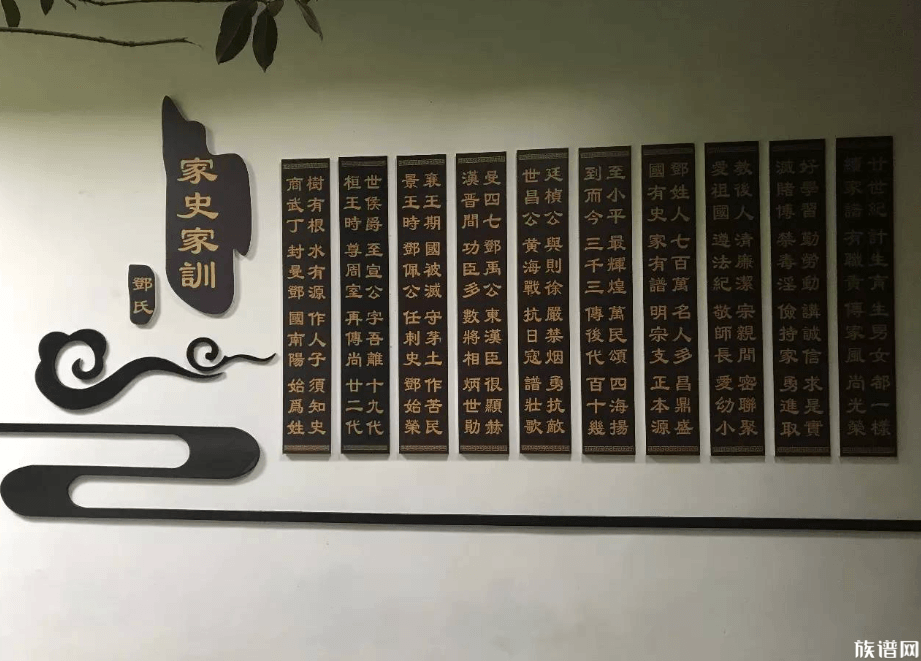 家史家訓
鄧氏
樹有根 水有源 作人子 須知史
商武丁 封曼鄧 國南陽 始爲姓
世侯爵 至宣公 字吾離 十九代
桓王時 尊周室 再傳尚 廿二代
襄王期 國被滅 守茅土 作苦民
景王時 鄧佩公 任刺史 鄧始榮
曼四七 鄧禹公 東漢臣 很顯赫
漢晉間 功臣多 數將相 炳世勛
廷楨公 與則徐 嚴禁烟 勇抗敵
世昌公 黃海戰 抗日寇 譜壯歌
至小平 最輝煌 萬民頌 四海揚
到而今 三千三 傳後代 百十幾
鄧姓人 七百萬 名人多 昌鼎盛
國有史 家有譜 明宗支 正本源
教後人 清廉潔 宗親間 密聯聚
愛祖國 遵法紀 敬師長 愛幼小
好學習 勤勞動 講誠信 求是實
滅賭博 禁毒淫 儉持家 勇進取
廿世紀 計生育 生男女 都一樣
續家譜 有職責 傳家風 尚光榮
族谱网